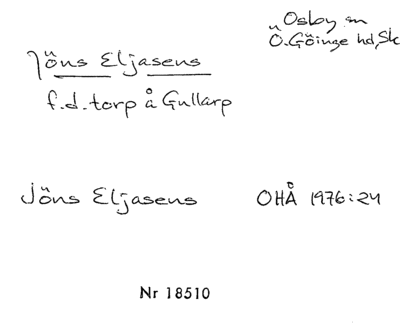 Osby sn
Ö.Göinge hd, Sk
Jöns Eljasens
f.d. torp å Gullarp
Jöns Eljasens OHÅ 1976:24
Nr 18510